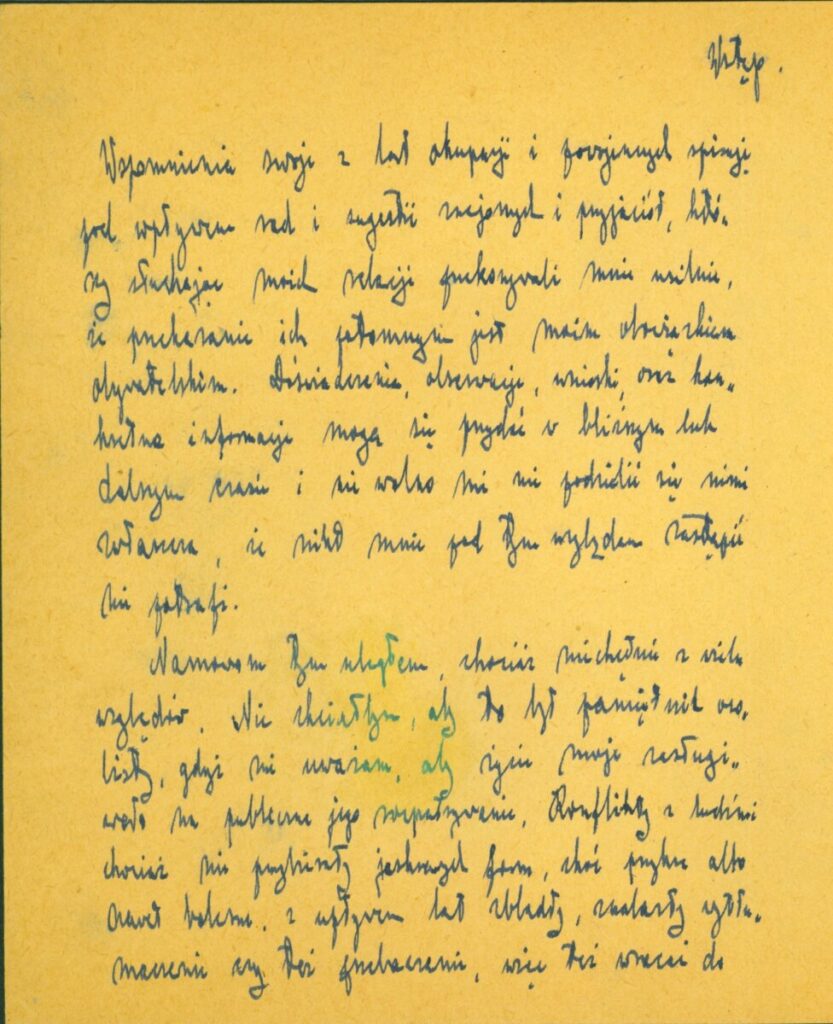 Wstęp.
Wspomnienia swoje z lat okupacji i powojennych spisuję
pod wpływem rad i sugestii znajomych i przyjaciół, któ-
rzy słuchając moich relacji przekonywali mnie usilnie,
że przekazanie ich potomnym jest moim obowiązkiem
obywatelskim. Doświadczenia, obserwacje, wnioski, oraz kon-
kretne informacje mogą się przydać w bliższym lub
dalszym czasie i nie wolno mi nie podzielić się nimi
zwłaszcza, że nikt mnie pod tym względem zastąpić
nie potrafi.
Namowom tym uległem, chociaż niechętnie z wielu
względów. Nie chciałbym, aby to był pamiętnik oso-
bisty, gdyż nie uważam, aby życie moje zasługi-
wało na publiczne jego rozpatrywanie. Konflikty z ludźmi
chociaż nie przybierały jaskrawych form, choć przykre albo
nawet bolesne, z upływem lat zbladły, znalazły wytłu-
maczenie czy też przebaczenie, więc też wracać do